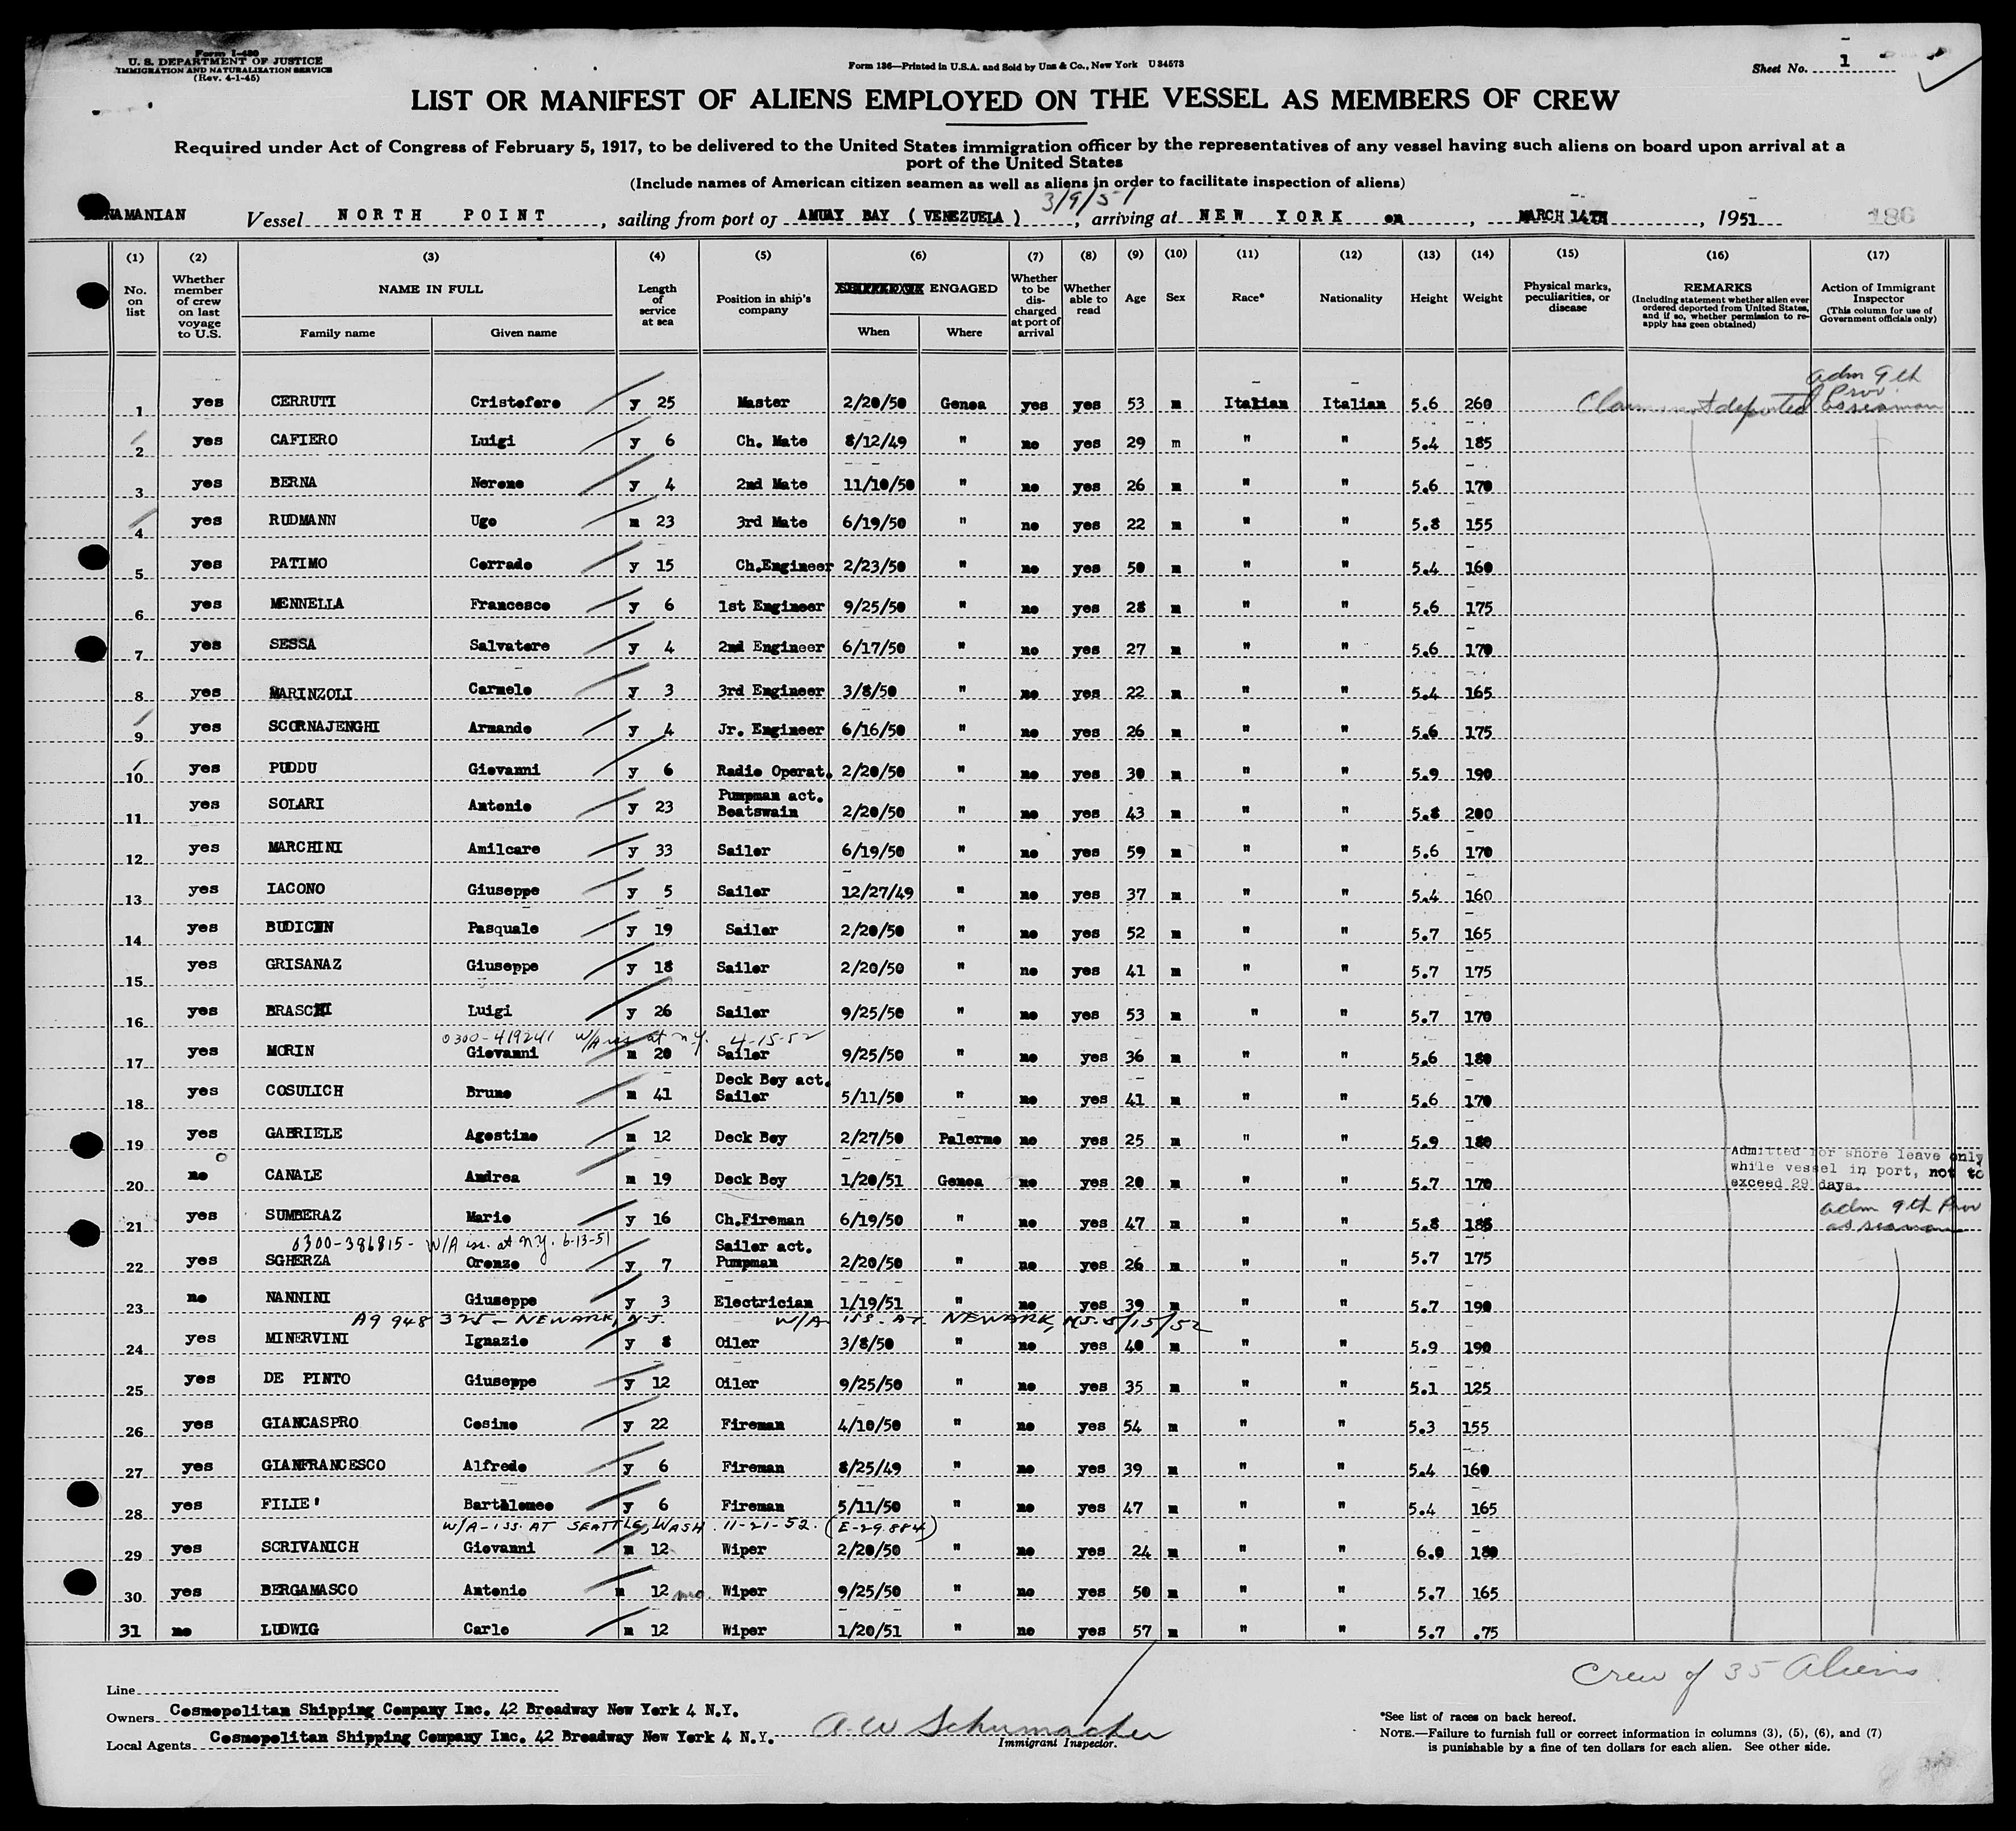 Form I-480
U. S. DEPARTMENT OF JUSTICE
IMMIGRATION AND NATURALIZATION SERVICE
(Rev. 4-1-45)
Form 136—Printed in U.S.A. and Sold by Unz & Co., New York U 34573
Sheet No. 1
LIST OR MANIFEST OF ALIENS EMPLOYED ON THE VESSEL AS MEMBERS OF CREW
Required under Act of Congress of February 5, 1917, to be delivered to the United States immigration officer by the representatives of any vessel having such aliens on board upon arrival at a
port of the United States
(Include names of American citizen seamen as well as aliens in order to facilitate inspection of aliens)
3/9/51
NAMANIAN Vessel NORTH POINT, sailing from port of AMUAY BAY (VENEZUELA), arriving at NEW YORK on, MARCH 14TH, 1951 186
(1) (2) (3) (4) (5) (6) (7) (8) (9) (10) (11) (12) (13) (14) (15) (16) (17)
No. on list Whether member of crew on last voyage to U.S. NAME IN FULL Family name Given name Length of service at sea Position in ship's company ENGAGED When Where Whether to be discharged at port of arrival Whether able to read Age Sex Race* Nationality Height Weight Physical marks, peculiarities, or disease REMARKS (Including statement whether alien ever ordered deported from United States, and if so, whether permission to reapply has geen obtained) Action of Immigrant Inspector (This column for use of Government officials only)
adm 9th Prov as seaman
1 yes CERRUTI Cristofero y 25 Master 2/20/50 Genoa yes yes 53 m Italian Italian 5.6 260 deported
2 yes CAFIERO Luigi y 6 Ch. Mate 8/12/49 " no yes 29 m " " 5.4 185
3 yes BERNA Nereno y 4 2nd Mate 11/10/50 " no yes 26 m " " 5.6 170
4 yes RUDMANN Ugo m 23 3rd Mate 6/19/50 " no yes 22 m " " 5.8 155
5 yes PATIMO Corrado y 15 Ch.Engineer 2/23/50 " no yes 50 m " " 5.4 160
6 yes MENNELLA Francesco y 6 1st Engineer 9/25/50 " no yes 28 m " " 5.6 175
7 yes SESSA Salvatore y 4 2nd Engineer 6/17/50 " no yes 27 m " " 5.6 170
8 yes MARINZOLI Carmelo y 3 3rd Engineer 3/8/50 " no yes 22 m " " 5.4 165
9 yes SCORNAJENGHI Armando y 4 Jr. Engineer 6/16/50 " no yes 26 m " " 5.6 175
10 yes PUDDU Giovanni y 6 Radio Operat. 2/20/50 " no yes 30 m " " 5.9 190
11 yes SOLARI Antonio y 23 Pumpman act. Boatswain 2/20/50 " no yes 43 m " " 5.8 200
12 yes MARCHINI Amilcare y 33 Sailor 6/19/50 " no yes 59 m " " 5.6 170
13 yes IACONO Giuseppe y 5 Sailor 12/27/49 " no yes 37 m " " 5.4 160
14 yes BUDICIN Pasquale y 19 Sailor 2/20/50 " no yes 52 m " " 5.7 165
15 yes GRISANAZ Giuseppe y 18 Sailor 2/20/50 " no yes 41 m " " 5.7 175
16 yes BRASCHI Luigi y 26 Sailor 9/25/50 " no yes 53 m " " 5.7 170
0300-419241 W/A iss at n.y. 4-15-52
17 yes MORIN Giovanni m 20 Sailor 9/25/50 " no yes 36 m " " 5.6 180
18 yes COSULICH Bruno m 41 Deck Boy act. Sailor 5/11/50 " no yes 41 m " " 5.6 170
19 yes GABRIELE Agostino m 12 Deck Boy 2/27/50 Palermo no yes 25 m " " 5.9 180
20 no CANALE Andrea m 19 Deck Boy 1/20/51 Genoa no yes 20 m " " 5.7 170 Admitted for shore leave only while vessel in port, not to exceed 29 days.
21 yes SUMBERAZ Mario y 16 Ch.Fireman 6/19/50 " no yes 47 m " " 5.8 185 adm 9th Prov as seaman
0300-386815- W/A iss. at N.Y. 6-13-51
22 yes SGHERZA Oronzo y 7 Sailor act. Pumpman 2/20/50 " no yes 26 m " " 5.7 175
23 no NANNINI Giuseppe y 3 Electrician 1/19/51 " no yes 39 m " " 5.7 190
A9 948 325 - NEWARK, N.J. W/A ISS. AT NEWARK, N.J. 8/15/52
24 yes MINERVINI Ignazio y 8 Oiler 3/8/50 " no yes 40 m " " 5.9 190
25 yes DE PINTO Giuseppe y 12 Oiler 9/25/50 " no yes 35 m " " 5.1 125
26 yes GIANCASPRO Cosimo y 22 Fireman 4/10/50 " no yes 54 m " " 5.3 155
27 yes GIANFRANCESCO Alfredo y 6 Fireman 8/25/49 " no yes 39 m " " 5.4 160
28 yes FILIE' Barthlomeo y 6 Fireman 5/11/50 " no yes 47 m " " 5.4 165
W/A-ISS. AT SEATTLE, WASH. 11-21-52. (E-29.884)
29 yes SCRIVANICH Giovanni m 12 Wiper 2/20/50 " no yes 24 m " " 6.0 180
30 yes BERGAMASCO Antonio m 12 mo. Wiper 9/25/50 " no yes 50 m " " 5.7 165
31 no LUDWIG Carlo m 12 Wiper 1/20/51 " no yes 57 m " " 5.7 .75
Crew of 35 Aliens
Line
Owners Cosmopolitan Shipping Company Inc. 42 Broadway New York 4 N.Y.
Local Agents Cosmopolitan Shipping Company Inc. 42 Broadway New York 4 N.Y.
A. W Schumacher
Immigrant Inspector.
*See list of races on back hereof.
NOTE.—Failure to furnish full or correct information in columns (3), (5), (6), and (7)
is punishable by a fine of ten dollars for each alien. See other side.